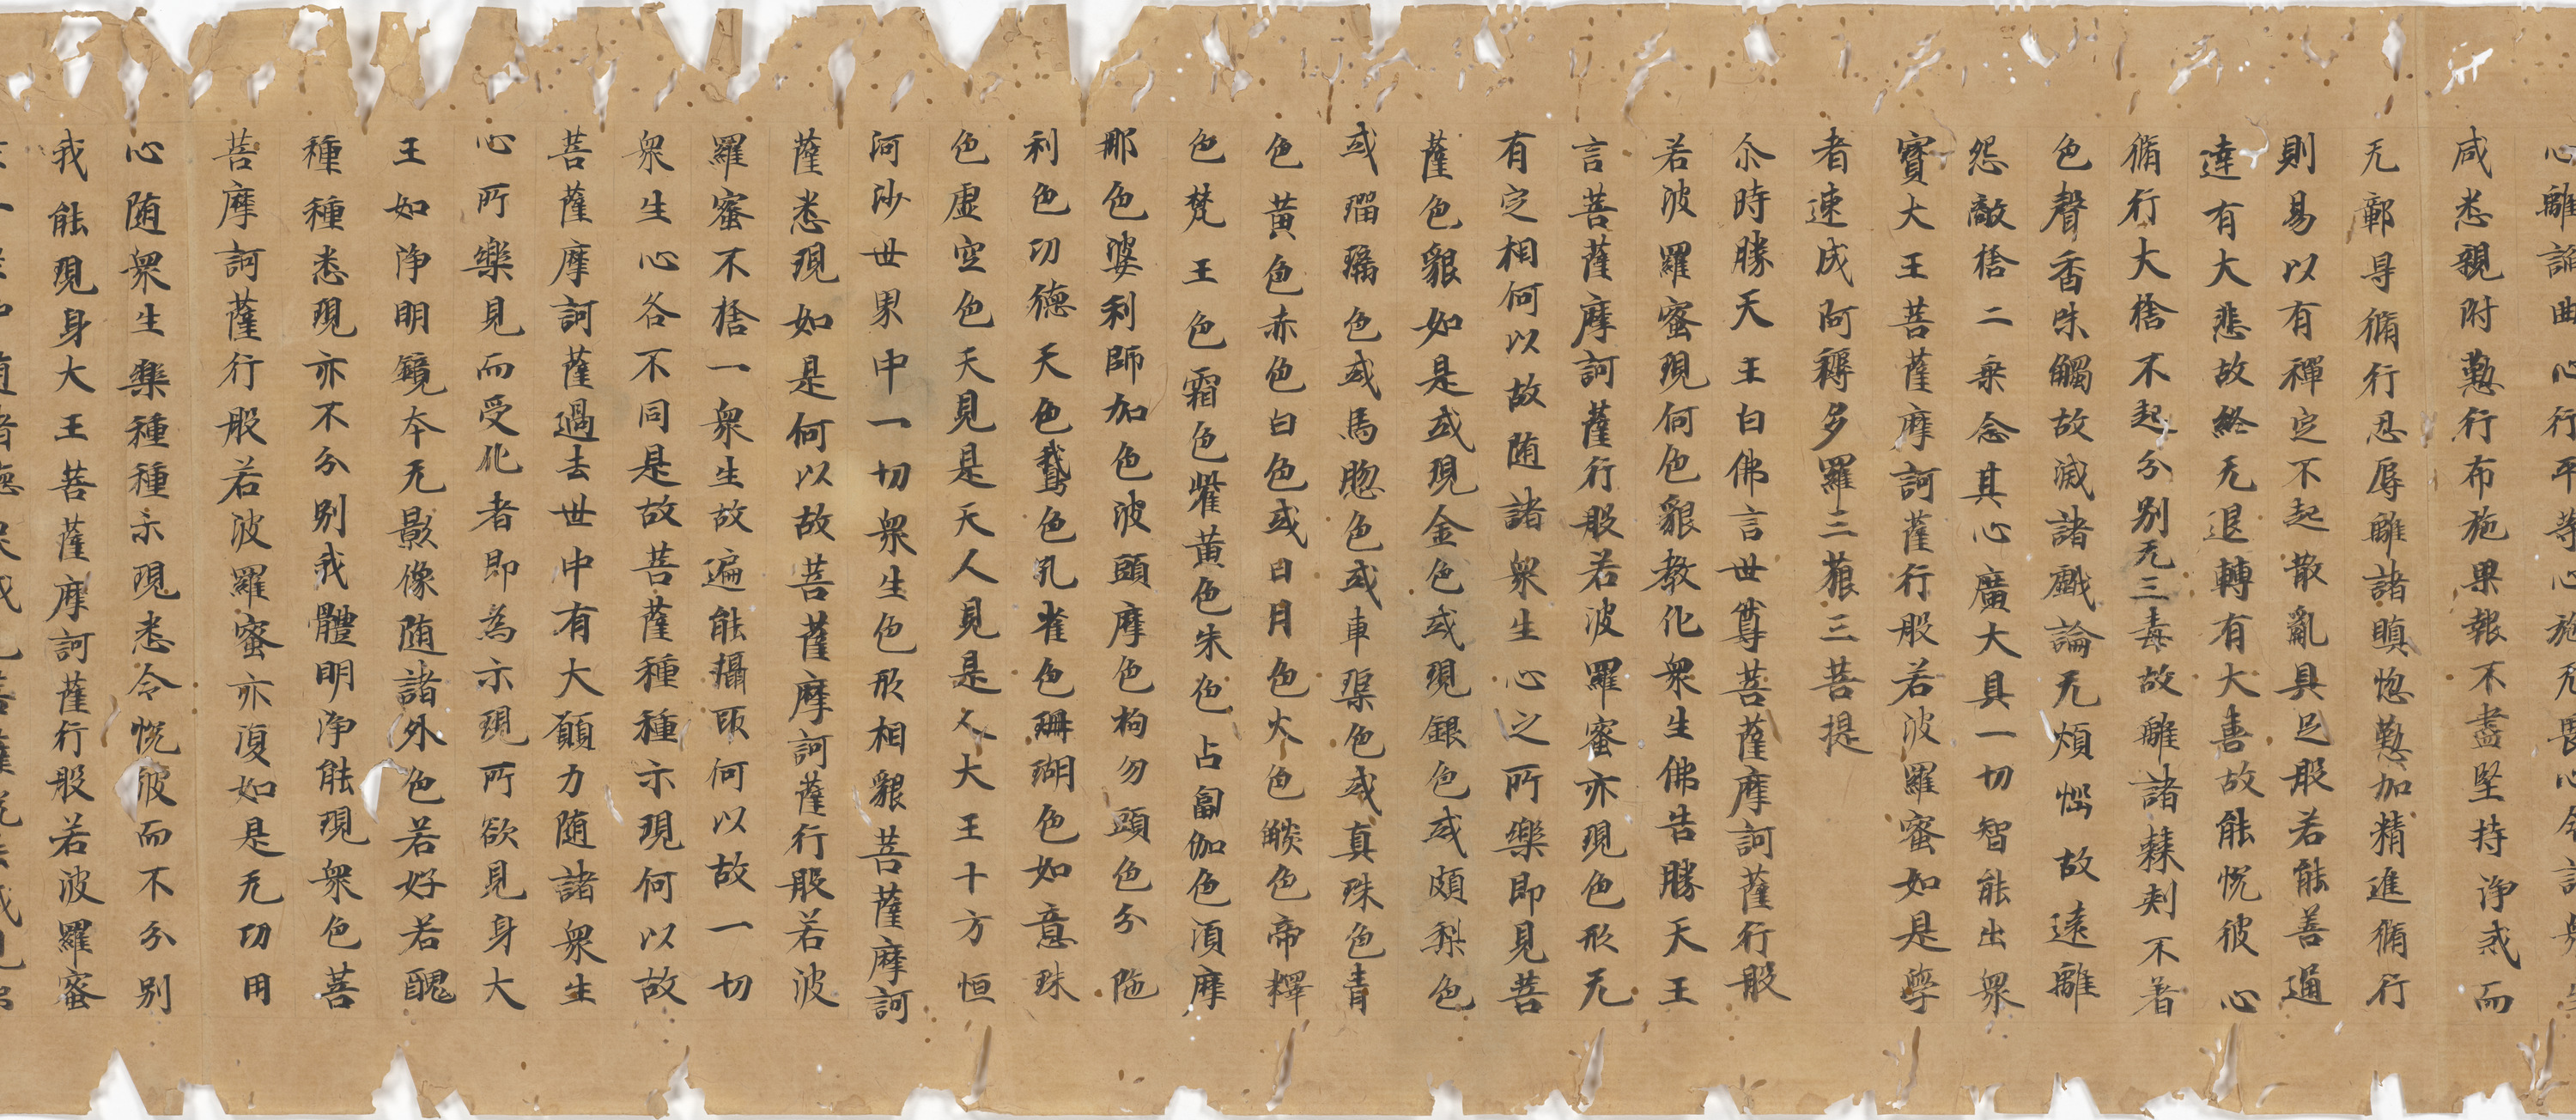 心離諂曲心行平等心施无畏心令諸衆生
咸悉親附懃行布施果報不盡堅持浄戒而
无鄣㝵脩行忍辱離諸瞋惚懃加精進脩行
則易以有禪定不起散亂具足般若能善通
達有大悲故終无退轉有大善故能恱彼心
脩行大捨不起分別无三毒故離諸棘刾不著
色聲香味觸故滅諸戲論无煩惱故遠離
怨敵捨二乗念其心廣大具一切智能出衆
寳大王菩薩摩訶薩行般若波羅蜜如是學
者速成阿耨多羅三藐三菩提
尒時勝天王白佛言世尊菩薩摩訶薩行般
若波羅蜜現何色貌教化衆生佛告勝天王
言菩薩摩訶薩行般若波羅蜜亦現色形无
有定相何以故随諸衆生心之所樂即見菩
薩色貌如是或現金色或現銀色或頗梨色
或瑠璃色或馬𦜝色或車渠色或真珠色青
色黄色赤色白色或日月色火色𦦨色帝釋
色梵王色霜色雌黄色朱色占匐伽色湏摩
那色婆利師加色波頭摩色拘勿頭色分陁
利色㓛德天色鵞色孔雀色珊瑚色如意珠
色虚空色天見是天人見是人大王十方恒
河沙世界中一切衆生色形相貌菩薩摩訶
薩悉現如是何以故菩薩摩訶薩行般若波
羅蜜不捨一衆生故遍能攝取何以故一切
衆生心各不同是故菩薩種種示現何以故
菩薩摩訶薩過去世中有大願力随諸衆生
心所樂見而受化者即為示現所欲見身大
王如浄明鏡夲无影像随諸外色若好若醜
種種悉現亦不分別我體明浄能現衆色菩
菩摩訶薩行般若波羅蜜亦復如是无㓛用
心随衆生樂種種示現悉令恱彼而不分別
我能現身大王菩薩摩訶薩行般若波羅蜜